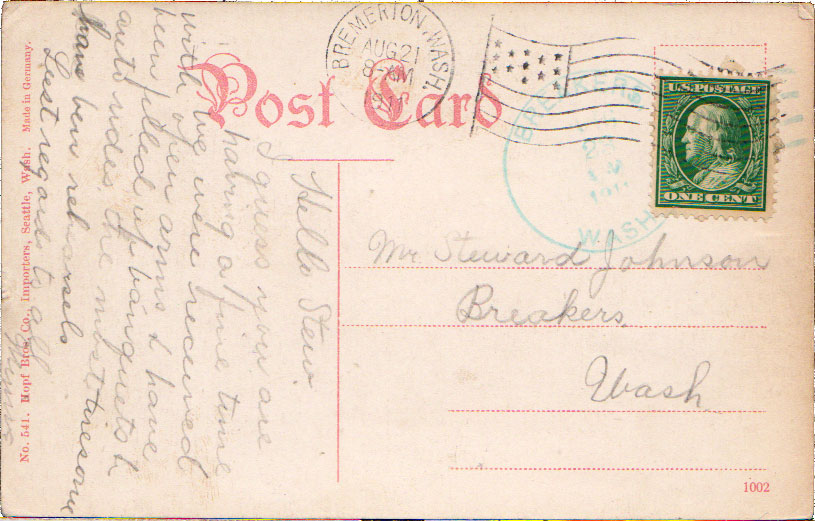 Post Card
BREMERTON, WASH.
AUG 21
8-AM
1911
BREAKERS
WASH
U.S. POSTAGE
ONE CENT
Hello Stew.
I guess you are
having a fine time
we were received
with open arms & have
been filled up banquets &
auto rides the most tiresome
have ben rehearsels
Best regards to all
Mr. Steward Johnson
Breakers,
Wash
No. 541. Hopf Bros. Co., Importers, Seattle, Wash. Made in Germany.
1002